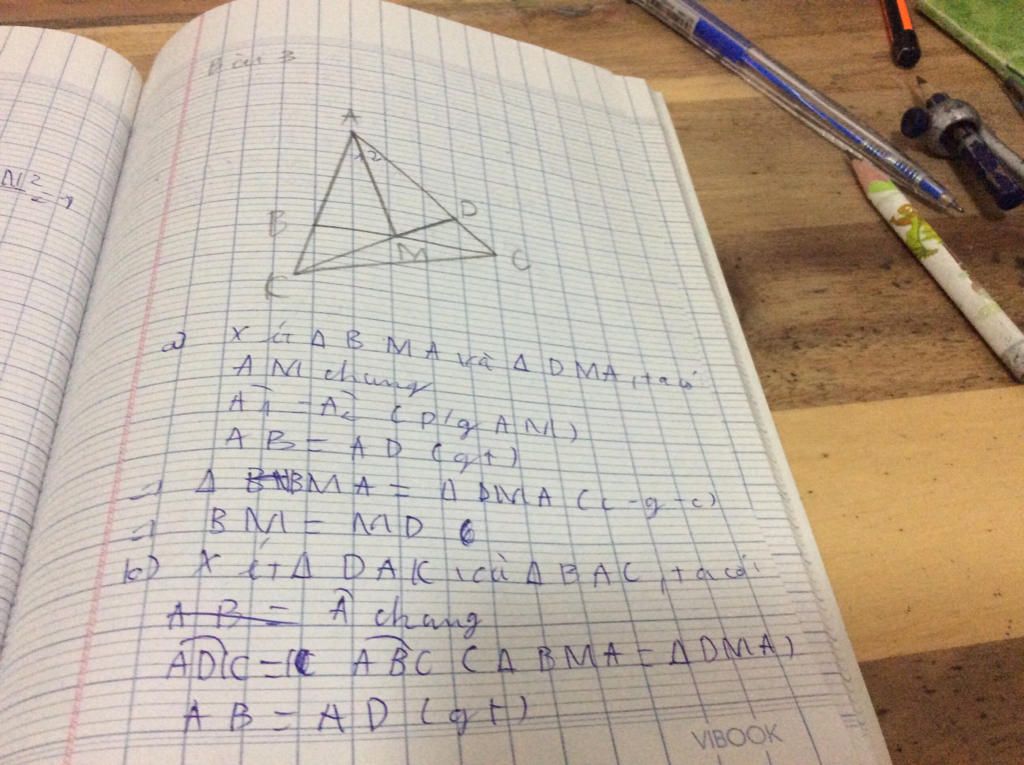 Bài 3
A
2
B
D
M
C
K
a) Xét Δ BMA và Δ DMA, ta có
AM chung
Â1 = Â2 (p/g AM)
AB = AD (gt)
=> Δ BMA = Δ DMA (c-g-c)
=> BM = MD
b) Xét Δ DAK và Δ BAC, ta có:
AB = Â chung
ADK = ABC (Δ BMA = Δ DMA)
AB = AD (gt)
VIBOOK